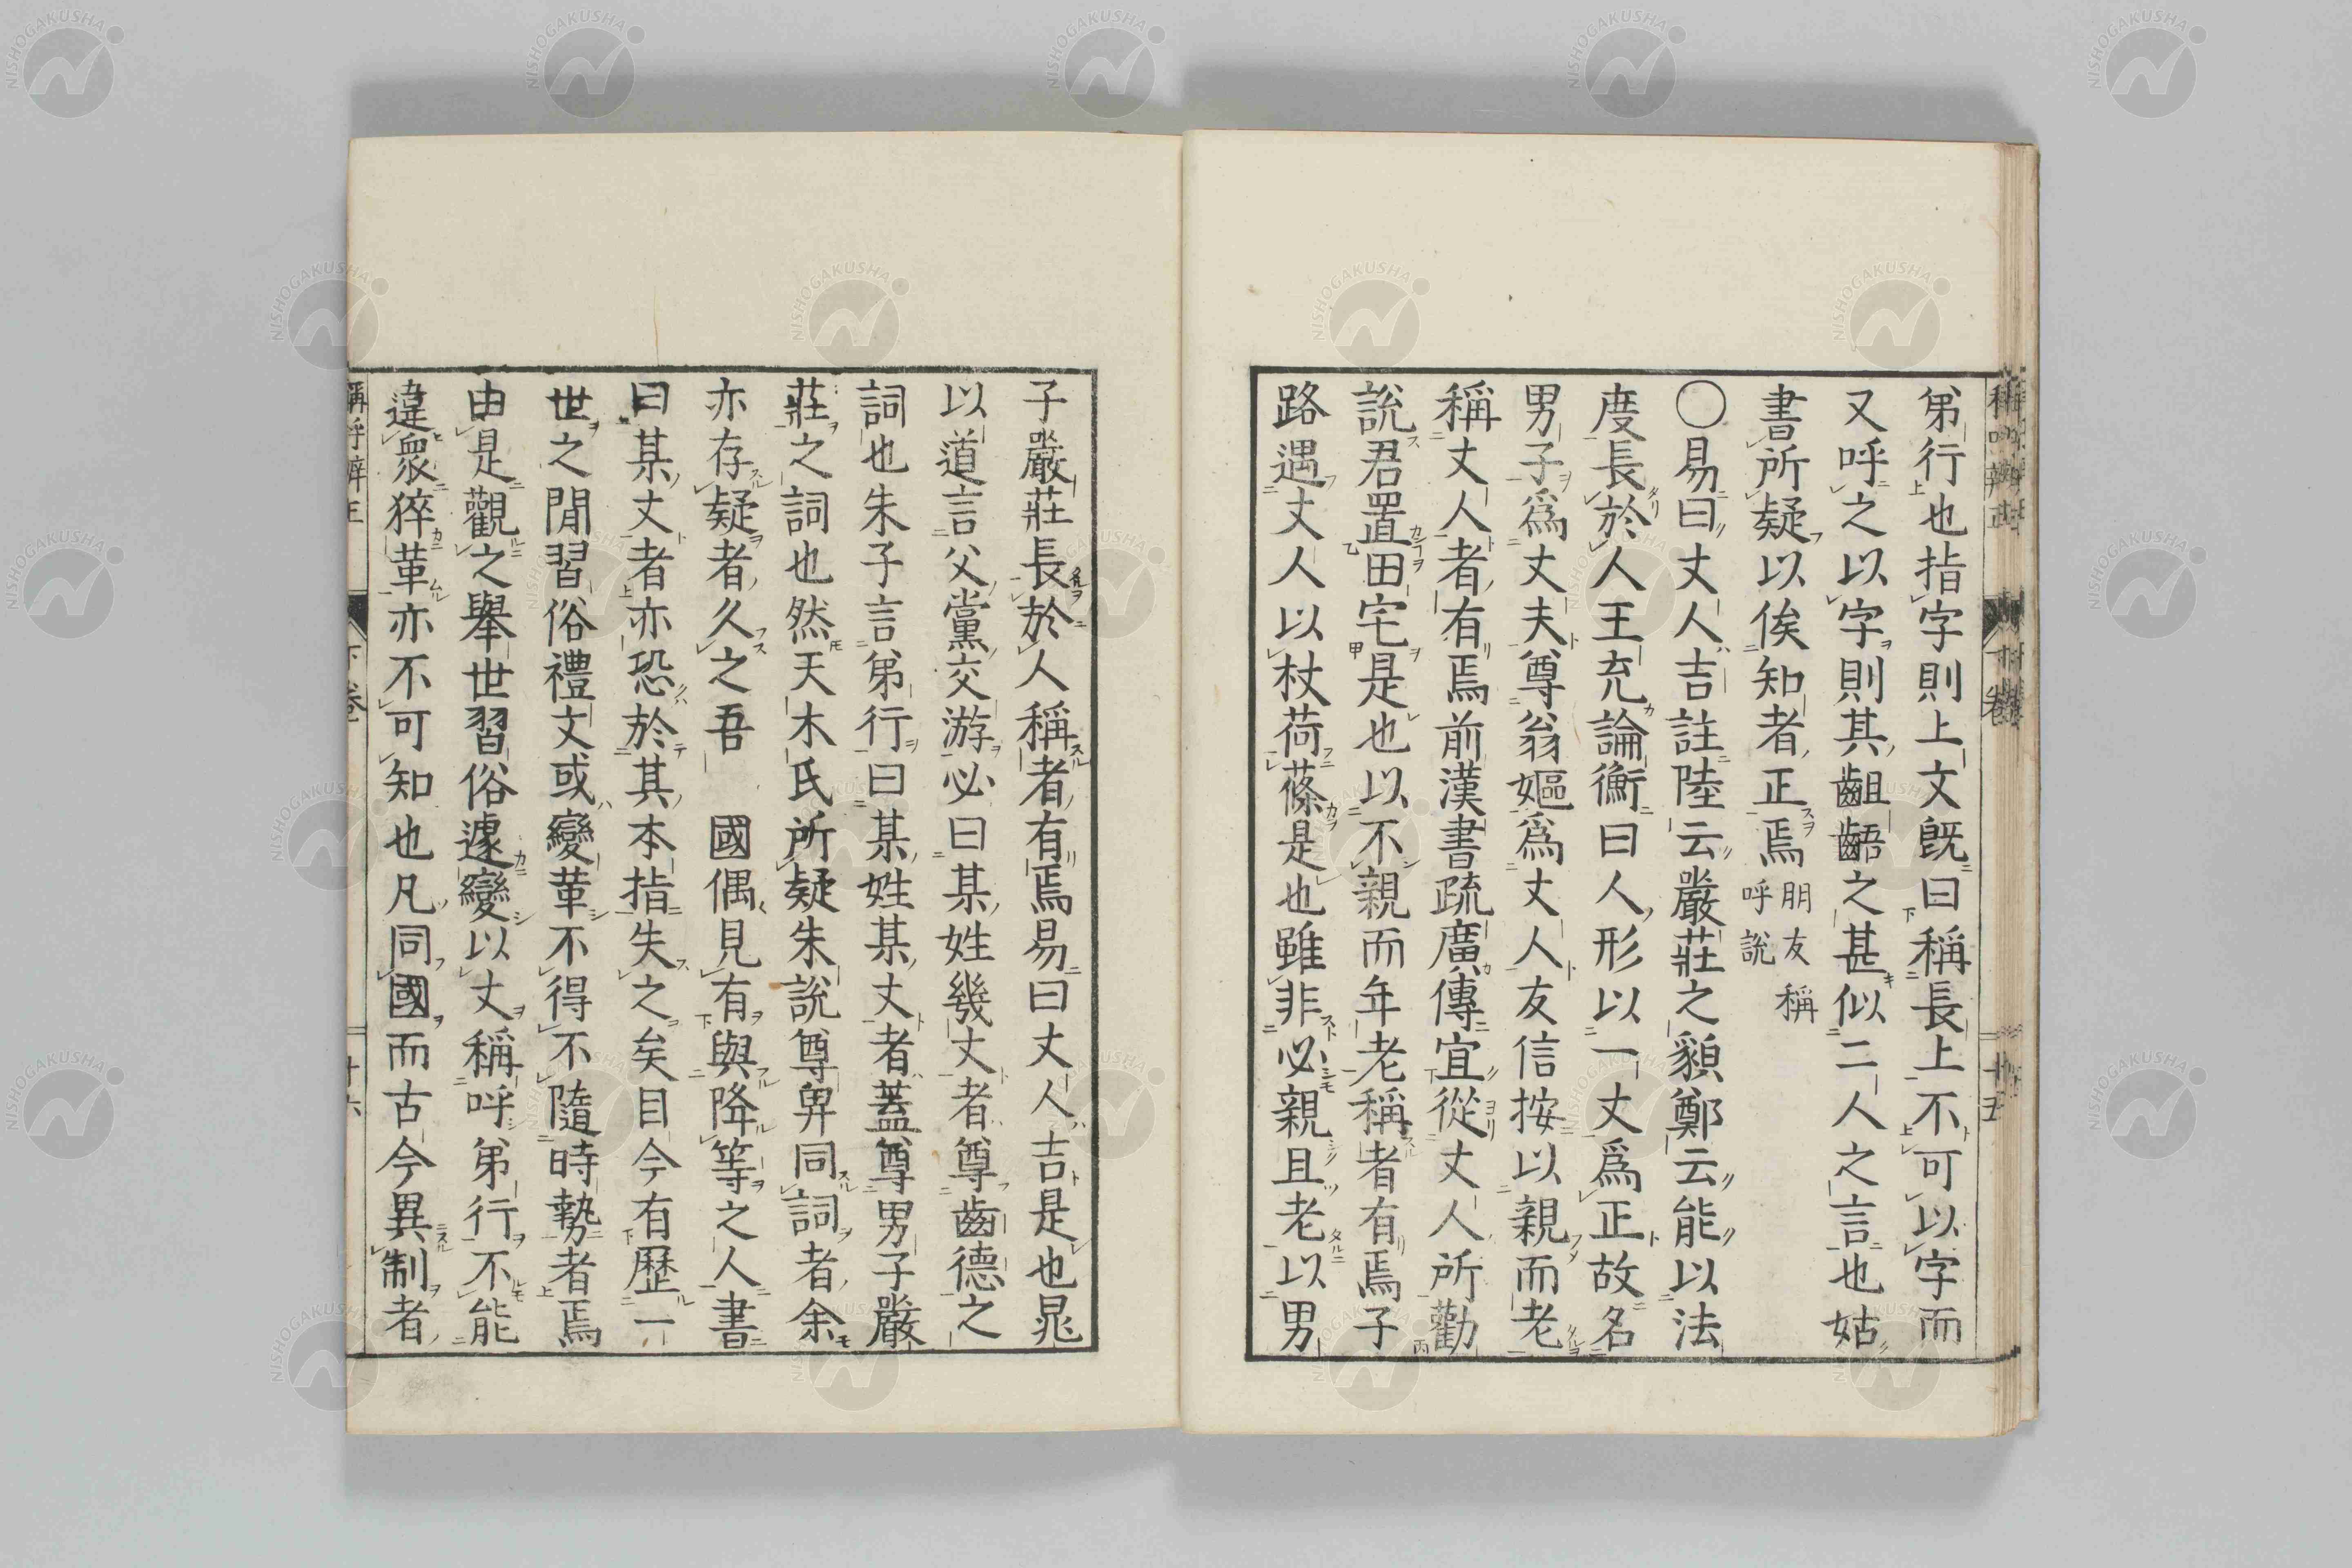 弟行也指字則上文既曰稱長上不可以字而
又呼之以字則其齟齬之甚似二人之言也姑
書所疑以俟知者正焉朋友稱呼說
〇易曰丈人吉註陸云嚴莊之貌鄭云能以法
度長於人王充論衡曰人形以一丈爲正故名
男子爲丈夫尊翁嫗爲丈人友信按以親而老
稱丈人者有焉前漢書疏廣傳宜從丈人所勸
說君置田宅是也以不親而年老稱者有焉子
路遇丈人以杖荷蓧是也雖非必親且老以男
子嚴莊長於人稱者有焉易曰丈人吉是也晁
以道言父黨交游必曰某姓幾丈者尊齒德之
詞也朱子言弟行曰某姓某丈者蓋尊男子嚴
莊之詞也然天木氏所疑朱說尊卑同詞者余
亦存疑者久之吾 國偶見有與降等之人書
曰某丈者亦恐於其本指失之矣目今有歷一
世之間習俗禮文或變革不得不隨時勢者焉
由是觀之舉世習俗遽變以丈稱呼弟行不能
違衆猝革亦不可知也凡同國而古今異制者
稱呼辨正 下卷 十六
NISHOGAKUSHA